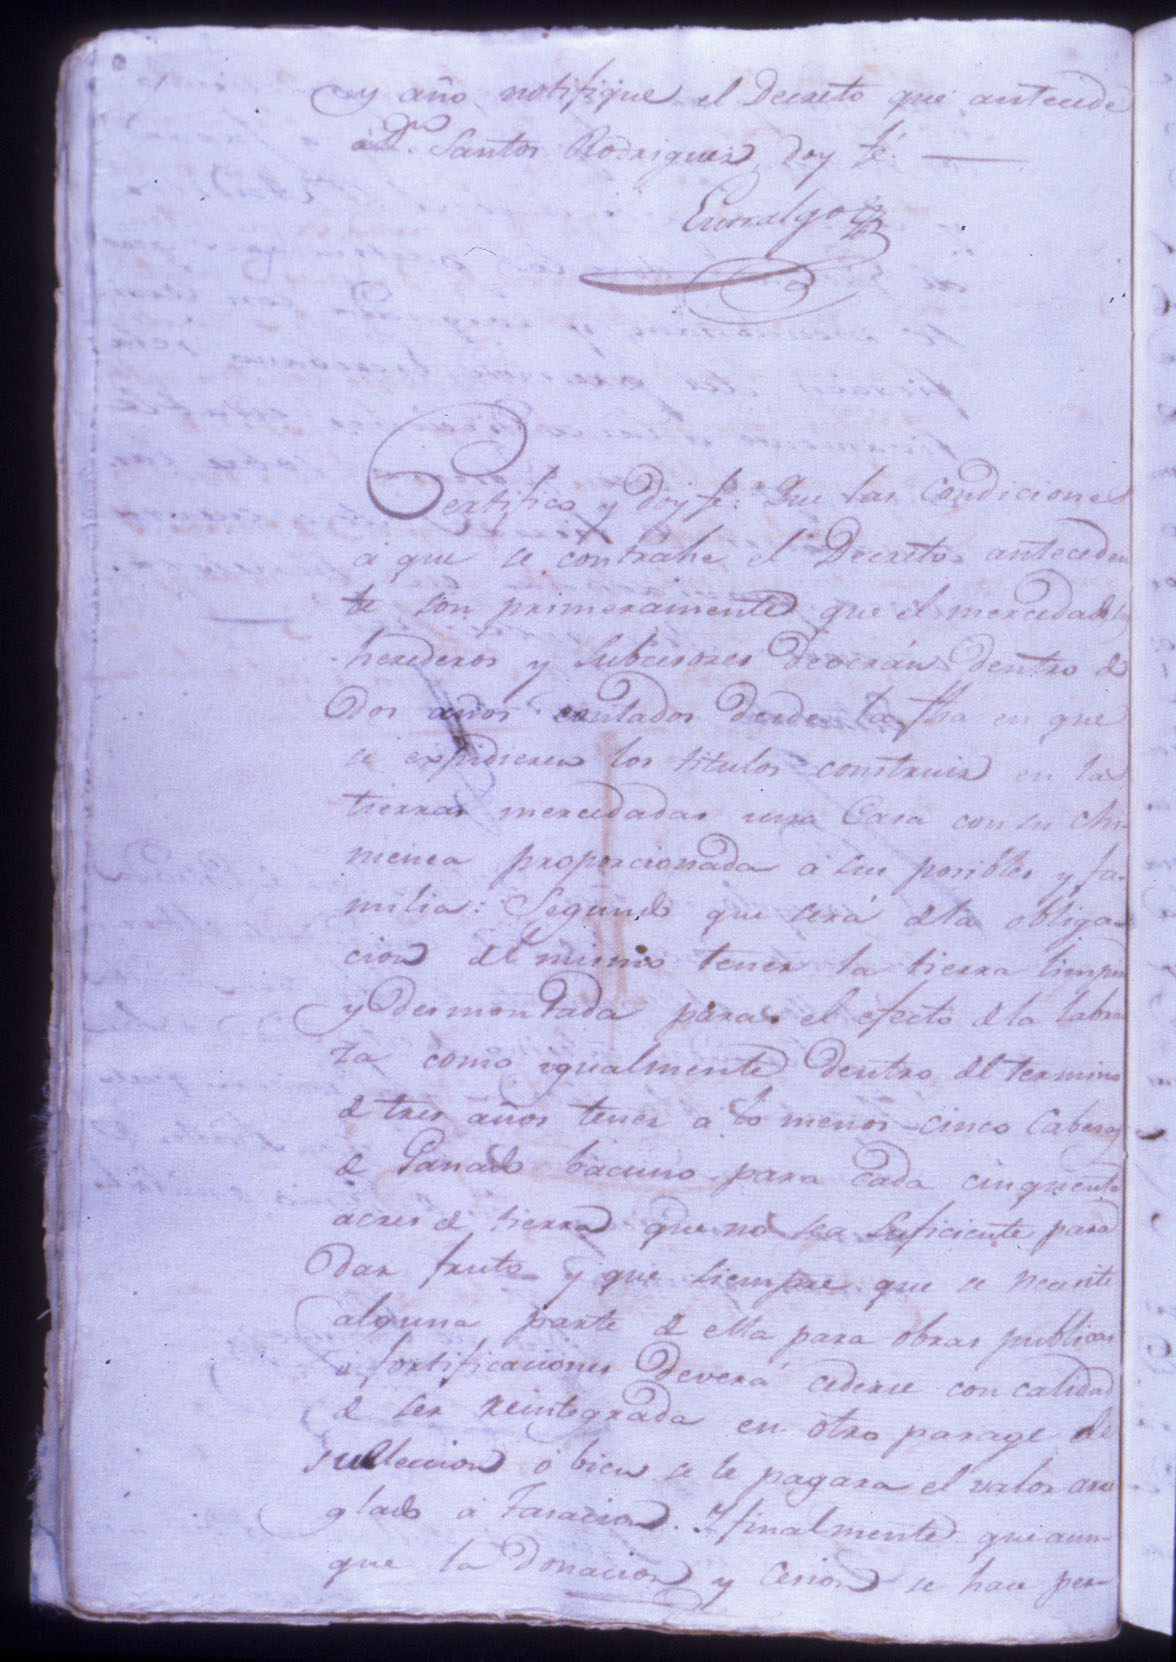 y año notifiqué el Decreto que antecede
á Dn Santos Rodriguez doy fé.
Certifico y doy fé: Que las Condiciones
á que se contrahe el Decreto anteceden
te son primeramente que el mercedado
herederos y Subcesores deverán dentro de
Dos años contados desde la fha en que
se expidieren los titulos construir en las
tierras mercedadas una Casa con su chi
menea proporcionada á sus posibles y fa-
milia: Segundo que será de la obliga-
cion del mismo tener la tierra limpia
y desmontada para el efecto de la labran
za como igualmente dentro del termino
de tres años tener á lo menos cinco Cabezas
de Ganado bacuno para cada cinquenta
acres de tierra que no sea Suficiente para
Dar fruto y que siempre que se necesite
alguna parte de ella para obras publicas
o fortificaciones deverá cederse con calidad
de ser reintegrada en otro parage de
su eleccion ó bien se le pagara el valor arre
glado á Tasacion. Y finalmente que aun-
que la Donacion y Cesion se hace per-